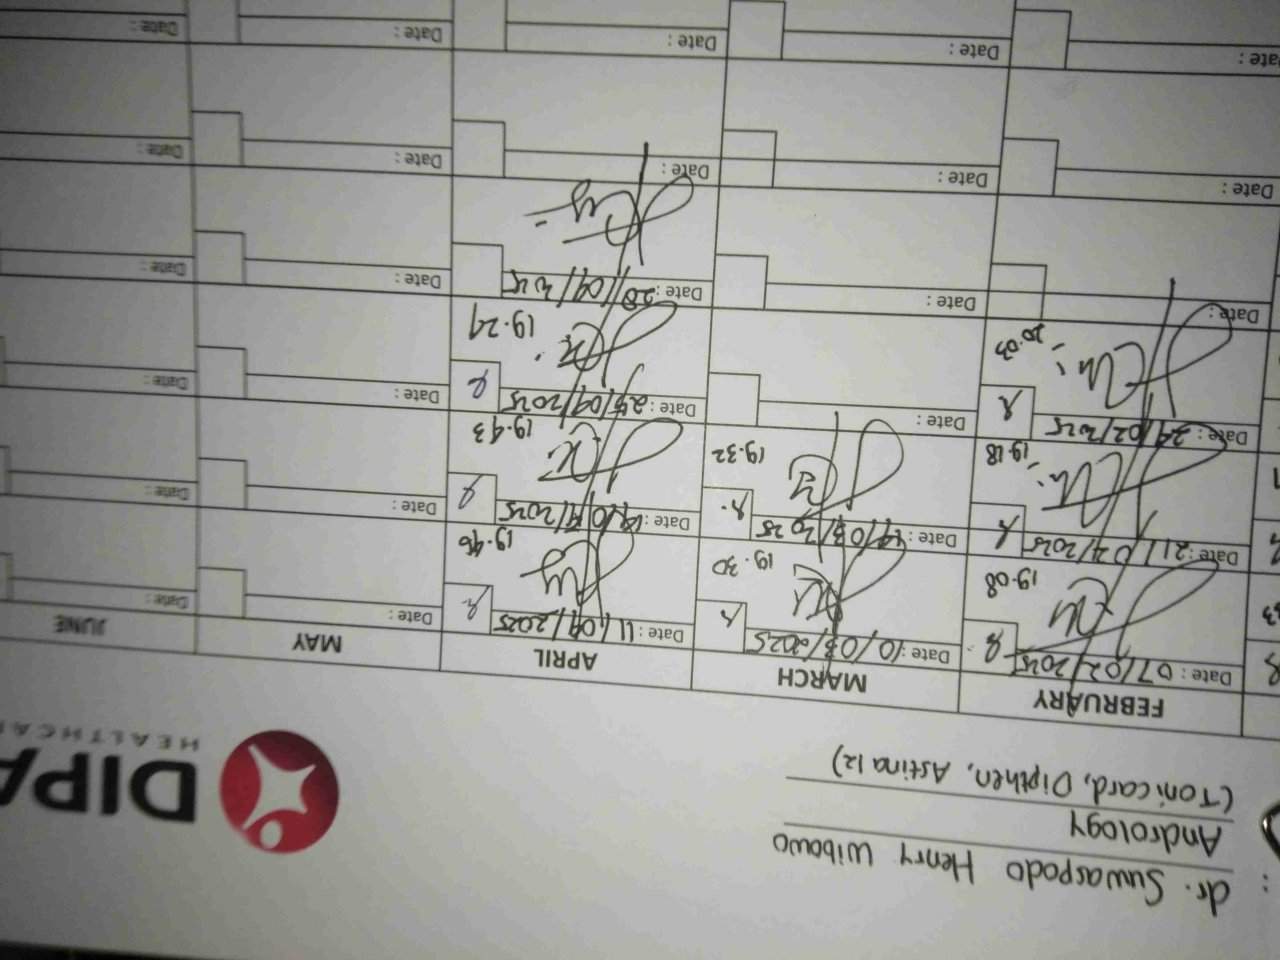 dr. Suwaspodo Henry Wibowo
Andrology
(Tonicard, Dipthen, Astina 12)
DIPA
HEALTHCA
FEBRUARY MARCH APRIL MAY JUNE
Date : 07/02/2025 Date : 10/03/2025 Date : 11/04/2025 Date : Date :
19.08 19.30 19.46
Date : 21/02/2025 Date : /03/2025 Date : Date : Date :
19.18 19.32 19.43
Date : /02/2025 Date : Date : 25/04/2025 Date : Date :
20.03 19.29
Date : Date : Date : 28/04/2025 Date : Date :
Date : Date : Date : Date : Date :
Date : Date : Date : Date : Date :